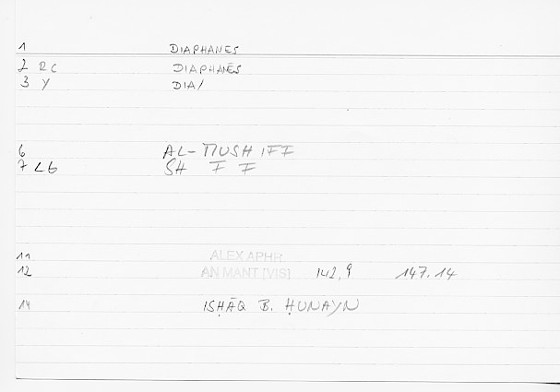 1 DIAPHANES
2 RC DIAPHANĒS
3 Y DIA/
6 AL-MUSHIFF
7 LG SH F F
11 ALEX APHR
12 AN MANT [VIS] 142,9 147.14
14 ISḤĀQ B. ḤUNAYN